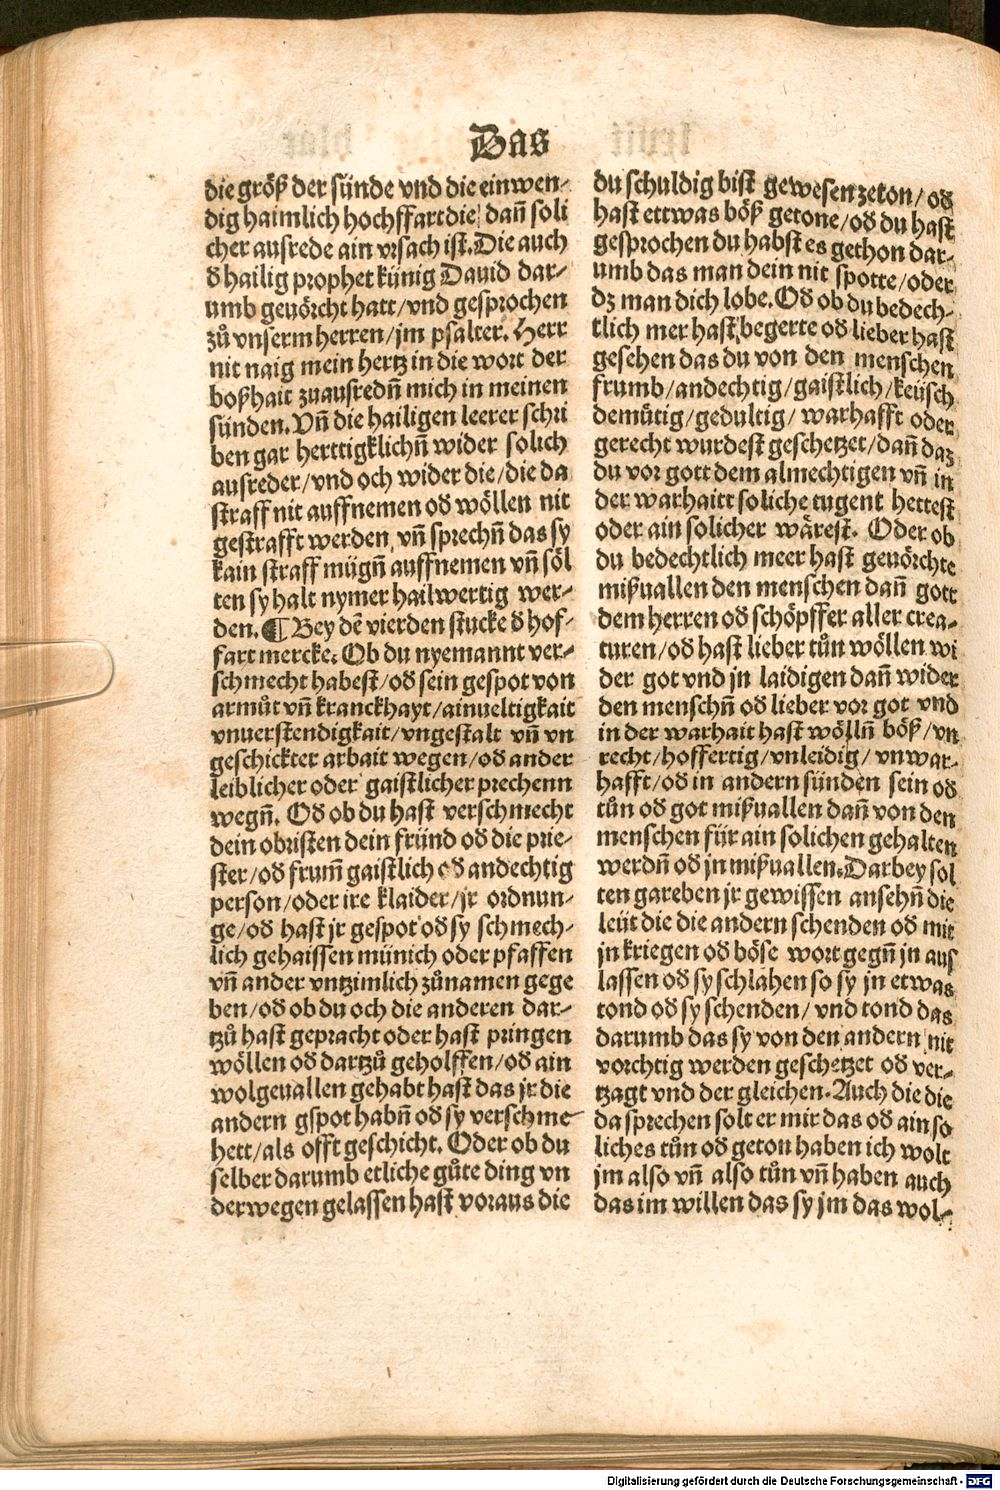 Das
die größ der sünde vnd die einwen-
dig haimlich hochffart die dañ soli
cher ausrede ain vrsach ist. Die auch
đ hailig prophet künig Dauid dar-
umb geuörcht hatt/vnd gesprochen
zů vnserm herren/jm psalter. Herr
nit naig mein hertz in die wort der
boßhait zuausredñ mich in meinen
sünden. Vñ die hailigen leerer schri
ben gar herttigklichñ wider solich
ausreder/vnd och wider die/die da
straff nit auffnemen ođ wöllen nit
gestrafft werden vñ sprechñ das sy
kain straff mügñ auffnemen vñ söl
ten sy halt nymer hailwertig wer-
den. ¶ Bey dē vierden stucke đ hof-
fart mercke. Ob du nyemannt ver-
schmecht habest/ođ sein gespot von
armůt vñ kranckhayt/ainueltigkait
vnuerstendigkait/vngestalt vñ vn
geschickter arbait wegen/ođ ander
leiblicher oder gaistlicher prechenn
wegñ. Ođ ob du hast verschmecht
dein obristen dein fründ ođ die prie-
ster/ođ frum̄ gaistlich ođ andechtig
person/oder ire klaider/jr ordnun-
ge/ođ hast jr gespot ođ sy schmech-
lich gehaissen münich oder pfaffen
vñ ander vntzimlich zůnamen gege
ben/ođ ob du och die anderen dar-
tzů hast gepracht oder hast pringen
wöllen ođ dartzů geholffen/ođ ain
wolgeuallen gehabt hast das jr die
andern gspot habñ ođ sy verschme-
hett/als offt geschicht. Oder ob du
selber darumb etliche gůte ding vn
derwegen gelassen hast voraus die
du schuldig bist gewesen zeton/ođ
hast ettwas böß getone/ođ du hast
gesprochen du habst es gethon dar-
umb das man dein nit spotte/oder
dz man dich lobe. Ođ ob du bedech-
tlich mer hast begerte ođ lieber hast
gesehen das du von den menschen
frumb/andechtig/gaistlich/keüsch
demütig/gedultig/warhafft oder
gerecht wurdest geschetzet/dañ daz
du vor gott dem almechtigen vñ in
der warhaitt soliche tugent hettest
oder ain solicher wärest. Oder ob
du bedechtlich meer hast geuörchte
mißuallen den menschen dañ gott
dem herren ođ schöpffer aller crea-
turen/ođ hast lieber tůn wöllen wi
der got vnd jn laidigen dañ wider
den menschñ ođ lieber vor got vnd
in der warhait hast wöllñ böß/vn
recht/hoffertig/vnleidig/vnwar-
hafft/ođ in andern sünden sein ođ
tůn ođ got mißuallen dañ von den
menschen für ain solichen gehalten
werdñ ođ jn mißuallen. Darbey sol
ten gar eben jr gewissen ansehñ die
leüt die die andern schenden ođ mit
jn kriegen ođ böse wort gegñ jn aus
lassen ođ sy schlahen so sy jn etwas
tond ođ sy schenden/vnd tond das
darumb das sy von den andern nit
vorchtig werden geschetzet ođ ver-
tzagt vnd der gleichen. Auch die die
da sprechen solt er mir das ođ ain so
liches tůn ođ geton haben ich wolt
jm also vñ also tůn vñ haben auch
das im willen das sy jm das wol-
Digitalisierung gefördert durch die Deutsche Forschungsgemeinschaft - DFG